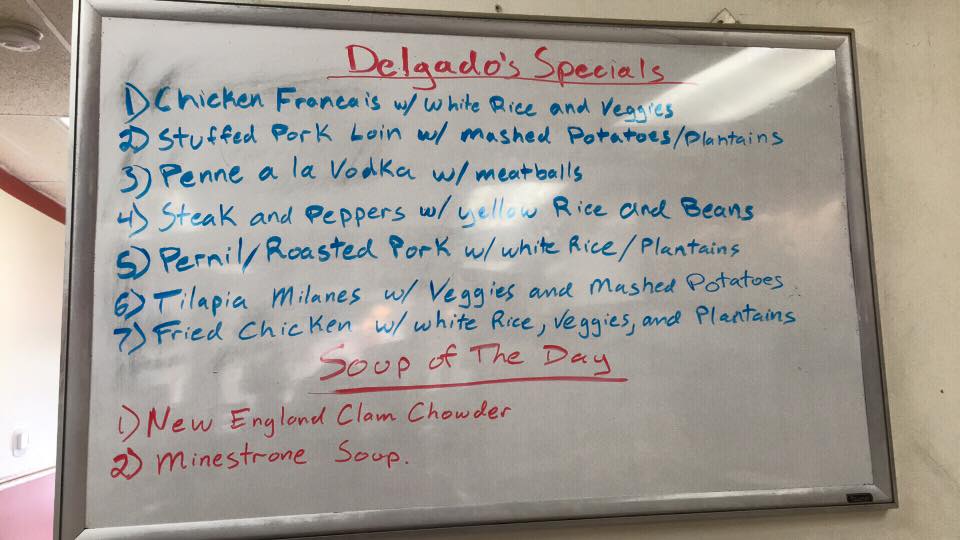 Delgado's Specials
1) Chicken Francais w/ white Rice and Veggies
2) Stuffed Pork Loin w/ mashed Potatoes/Plantains
3) Penne a la Vodka w/ meatballs
4) Steak and Peppers w/ yellow Rice and Beans
5) Pernil/Roasted Pork w/ white Rice/Plantains
6) Tilapia Milanes w/ Veggies and Mashed Potatoes
7) Fried Chicken w/ white Rice, Veggies, and Plantains
Soup of The Day
1) New England Clam Chowder
2) Minestrone Soup.